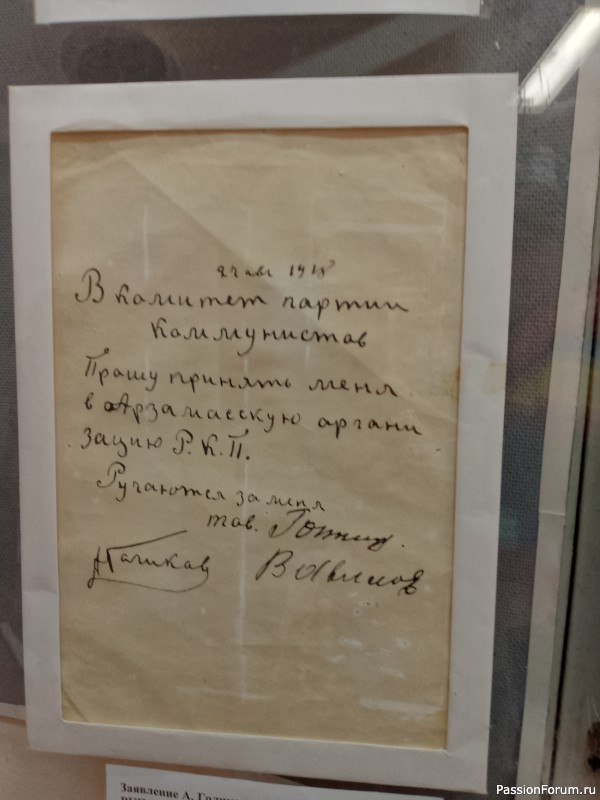 авг 1918
В комитет партии
Коммунистов
Прошу принять меня
в Арзамасскую органи
зацию Р.К.П.
Ручаются за меня
тов. Гоппиус.
Вавилов
Заявление А.
PassionForum.ru